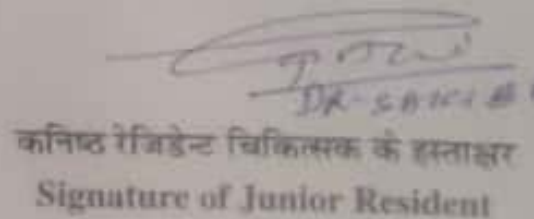 DR-
कनिष्ठ रेजिडेन्ट चिकित्सक के हस्ताक्षर
Signature of Junior Resident